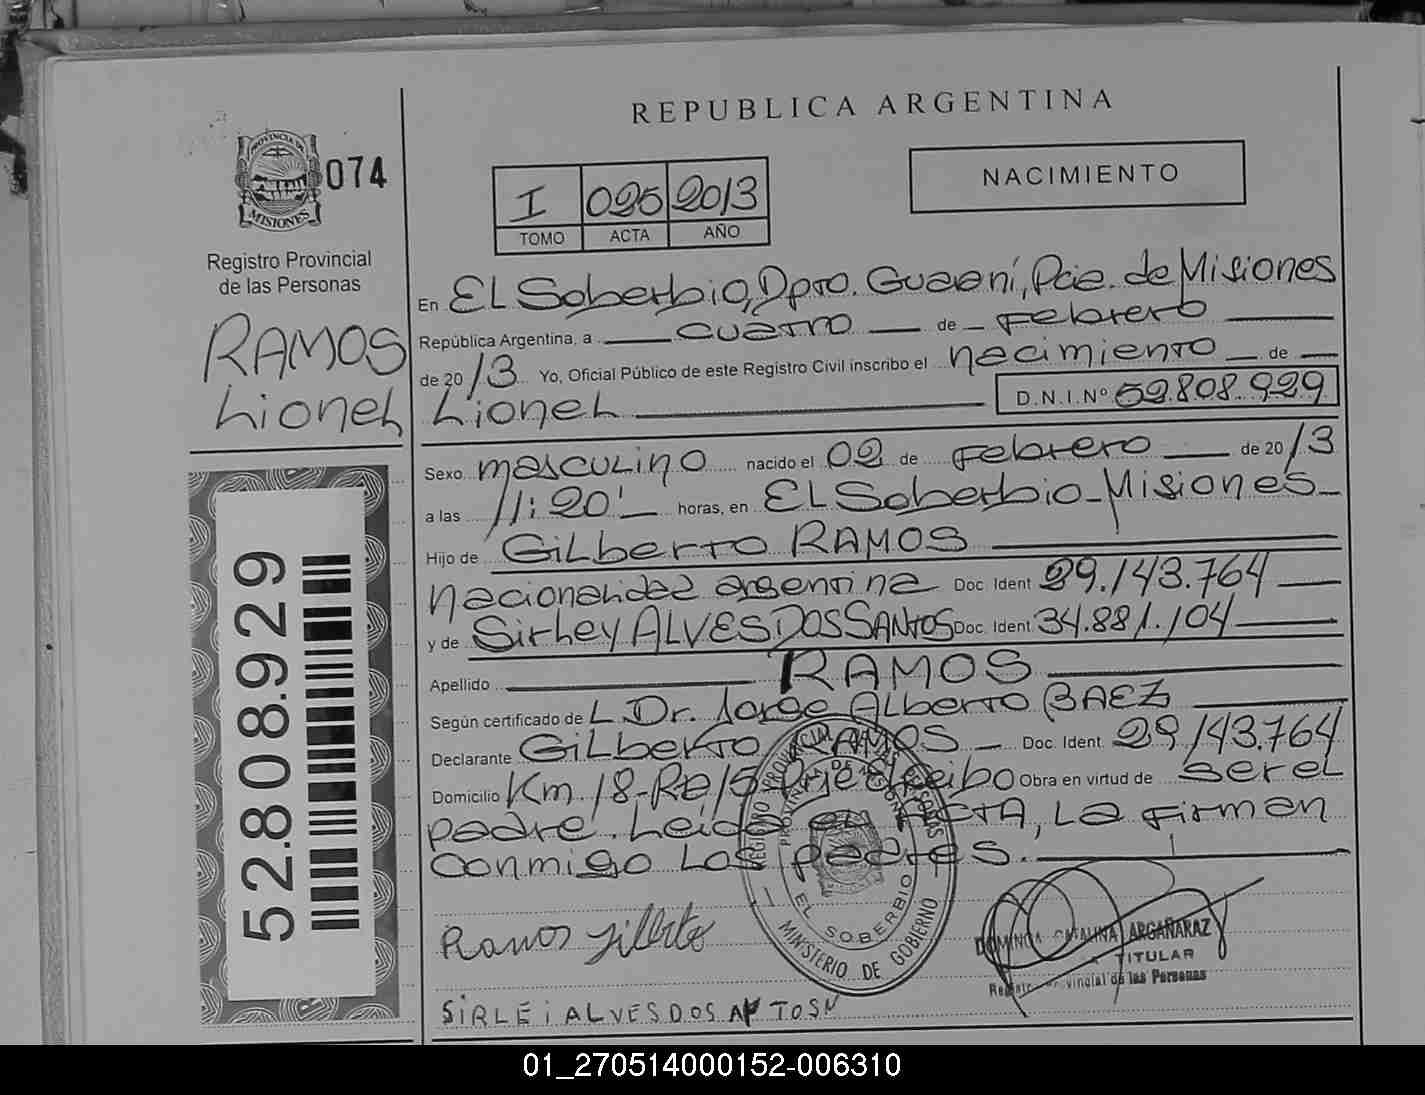 REPUBLICA ARGENTINA
PROVINCIA DE
MISIONES
074
Registro Provincial
de las Personas
RAMOS
Lionel
52.808.929
I 025 2013
TOMO ACTA AÑO
NACIMIENTO
En EL Soberbio, Dpto. Guaraní, Pcia. de Misiones
República Argentina, a cuatro de febrero
de 2013 Yo, Oficial Público de este Registro Civil inscribo el nacimiento de
Lionel D.N.I.Nº 52.808.929
Sexo masculino nacido el 02 de febrero de 2013
a las 11:20' horas, en EL Soberbio - Misiones -
Hijo de Gilberto RAMOS
nacionalidad argentina Doc. Ident. 29.143.764
y de Sirley ALVES DOS SANTOS Doc. Ident. 34.881.104
Apellido RAMOS
Según certificado de L Dr. Jorge Alberto BAEZ
Declarante Gilberto RAMOS - Doc. Ident. 29.143.764
Domicilio Km 18-R 15 Obra en virtud de ser el
padre. Leida el ACTA, La firman
conmigo Los padres.
REGISTRO PROVINCIAL DE LAS PERSONAS
PROVINCIA DE MISIONES
EL SOBERBIO
MINISTERIO DE GOBIERNO
Ramos Gilberto
SIRLEI ALVES DOS
DOMINGA CATALINA ARGAÑARAZ
TITULAR
Registro Provincial de las Personas
01_270514000152-006310